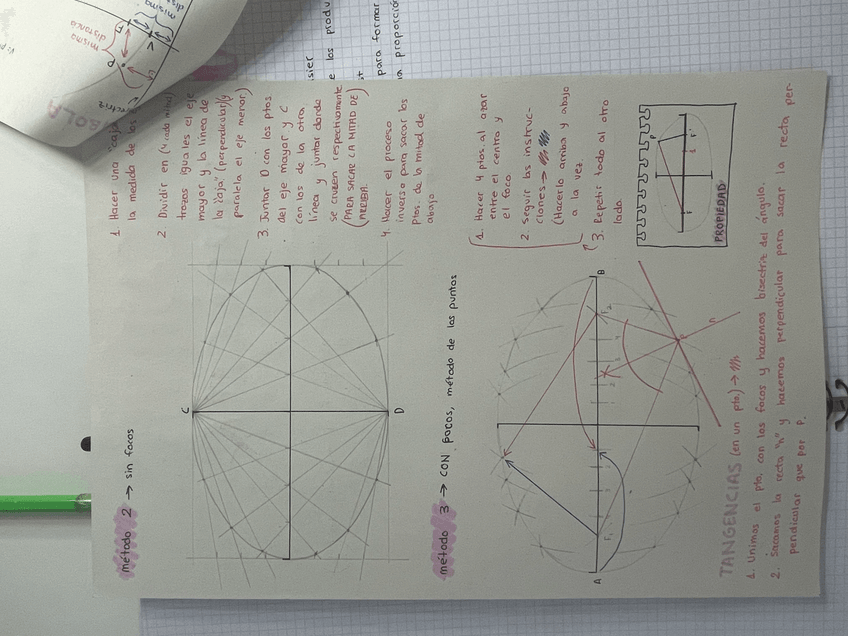 método 2 → sin focos
1. Hacer una "caja
la medida de los
2 Dividir en (4 cada mitad)
trozos iguales el eje
mayor y la línea de
la "caja" (perpendicular) y
paralela el eje menor)
3. Juntar D con los ptos
del eje mayor y C
con los de la otra
línea y juntar donde
se cruzen respectivamente
(PARA SACAR LA MITAD DE
ARRIBA)
4. Hacer el proceso
inverso para sacar los
ptos. de la mitad de
abajo
C
D
método 3 → CON focos, método de los puntos
1. Hacer 4 ptos. al azar
entre el centro y
el foco
2. Seguir las instruc-
ciones →
(Hacerlo arriba y abajo
a la vez
3. Repetir todo al otro
lado.
A
B
F1
F2
P
n
PROPIEDAD
TANGENCIAS (en un pto.) →
1. Unimos el pto. con los focos y hacemos bisectriz del ángulo.
2. Sacamos la recta "n" y hacemos perpendicular para sacar la recta per-
pendicular que por P.
misma
distancia
misma
para formar
la proporción
e los produ